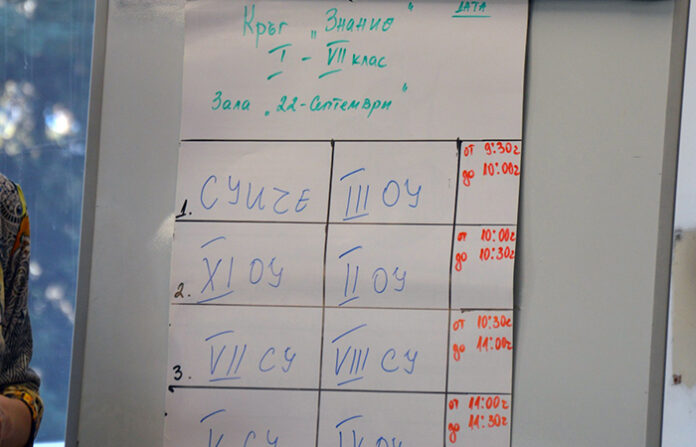 Кръг „Знание“
ДАТА
I - VII клас
Зала „22-Септември“
1. СУИЧЕ III ОУ от 9:30г
до 10:00г
2. XI ОУ II ОУ от 10:00г
до 10:30г
3. VII СУ VIII СУ от 10:30г
до 11:00г
V СУ IV ОУ от 11:00г
до 11:30г